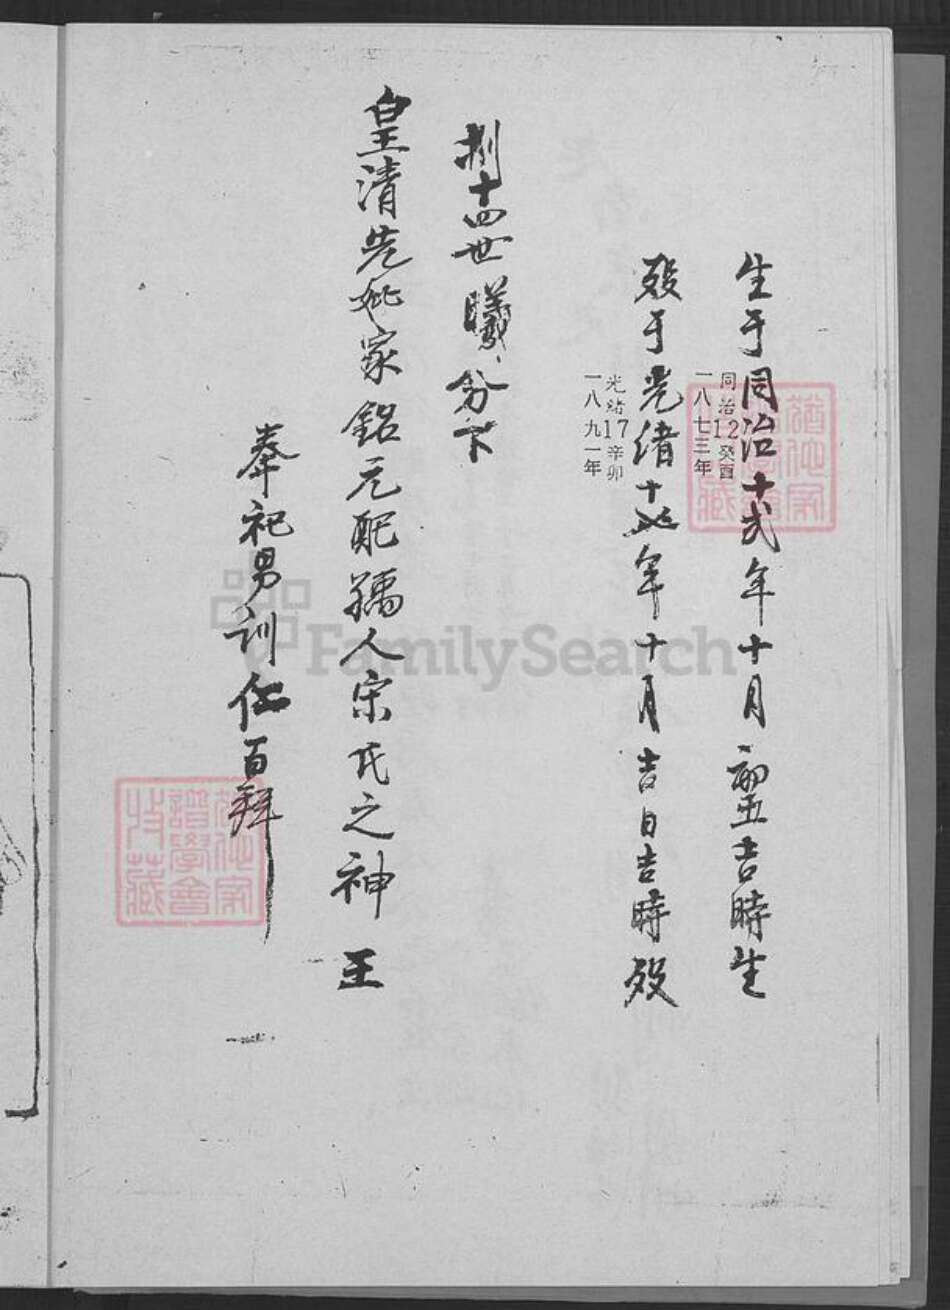 生于同治十弍年十月初五吉時生
同治12癸酉
一八七三年
殁于光緒十七年十月吉日吉時殁
光緒17辛卯
一八九一年
捌十四世曦公下
皇清先妣家鋁元配孺人宋氏之神王
奉祀男訓仁百拜
譜學會
收藏
FamilySearch